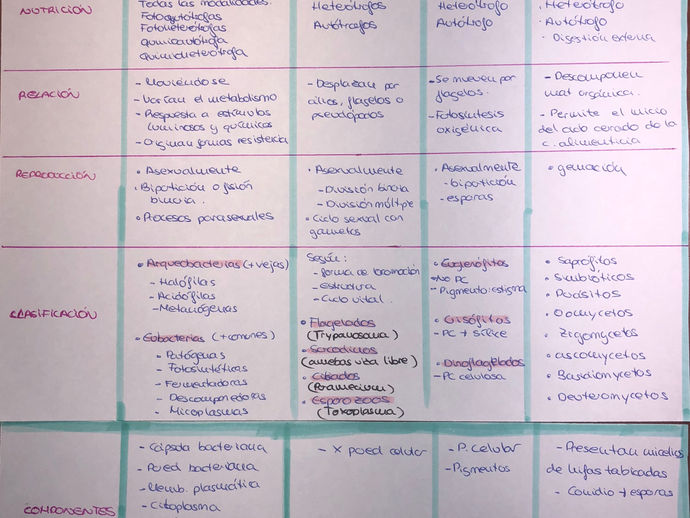 NUTRICIÓN
Todas las modalidades:
Fotoautótrofas
Fotoheterótrofas
Quimioautótrofa
Quimioheterótrofa
Heterótrofos
Autótrofos
Heterótrofo
Autótrofo
· Heterótrofo
· Autótrofo
· Digestión externa
RELACIÓN
- Moviéndose
- Varían el metabolismo
- Respuesta a estímulos
luminosos y químicos
- Originan formas resistencia
- Desplazan por
cilios, flagelos o
pseudópodos
- Se mueven por
flagelos.
- Fotosíntesis
oxigénica
- Descomponen
mat orgánica.
- Permite el inicio
del ciclo cerrado de la
c. alimenticia
REPRODUCCIÓN
• Asexualmente
• Bipartición o fisión
binaria.
• Procesos parasexuales
• Asexualmente
- División binaria
- División múltiple
• Ciclo sexual con
gametos
• Asexualmente
- bipartición
- esporas
• gemación
CLASIFICACIÓN
• Arqueobacterias (+ viejas)
- Halófilas
- Acidófilas
- Metanógenas
• Eubacterias (+ comunes)
- Patógenas
- Fotosintéticas
- Fermentadoras
- Descomponedoras
- Micoplasmas
Según:
- forma de locomoción
- estructura
- Ciclo vital.
• Flagelados
(Trypanosoma)
• Sarcodinos
(amebas vida libre)
• Ciliados
(Paramecium)
• Esporozoos
(Toxoplasma)
• Euglenófitos
- No PC
- Pigmento: estigma
• Crisófitos
- PC + sílice
• Dinoflagelados
- PC celulosa
• Saprófitos
• Simbióticos
• Parásitos
• Oomycetos
• Zigomycetos
• ascomycetos
• Basidiomycetos
• Deuteromycetos
COMPONENTES
- Cápsula bacteriana
- Pared bacteriana
- Memb. plasmática
- Citoplasma
- X pared celular
- P. celular
- Pigmentos
- Presentan micelios
de hifas tabicadas
- Conidio → esporas